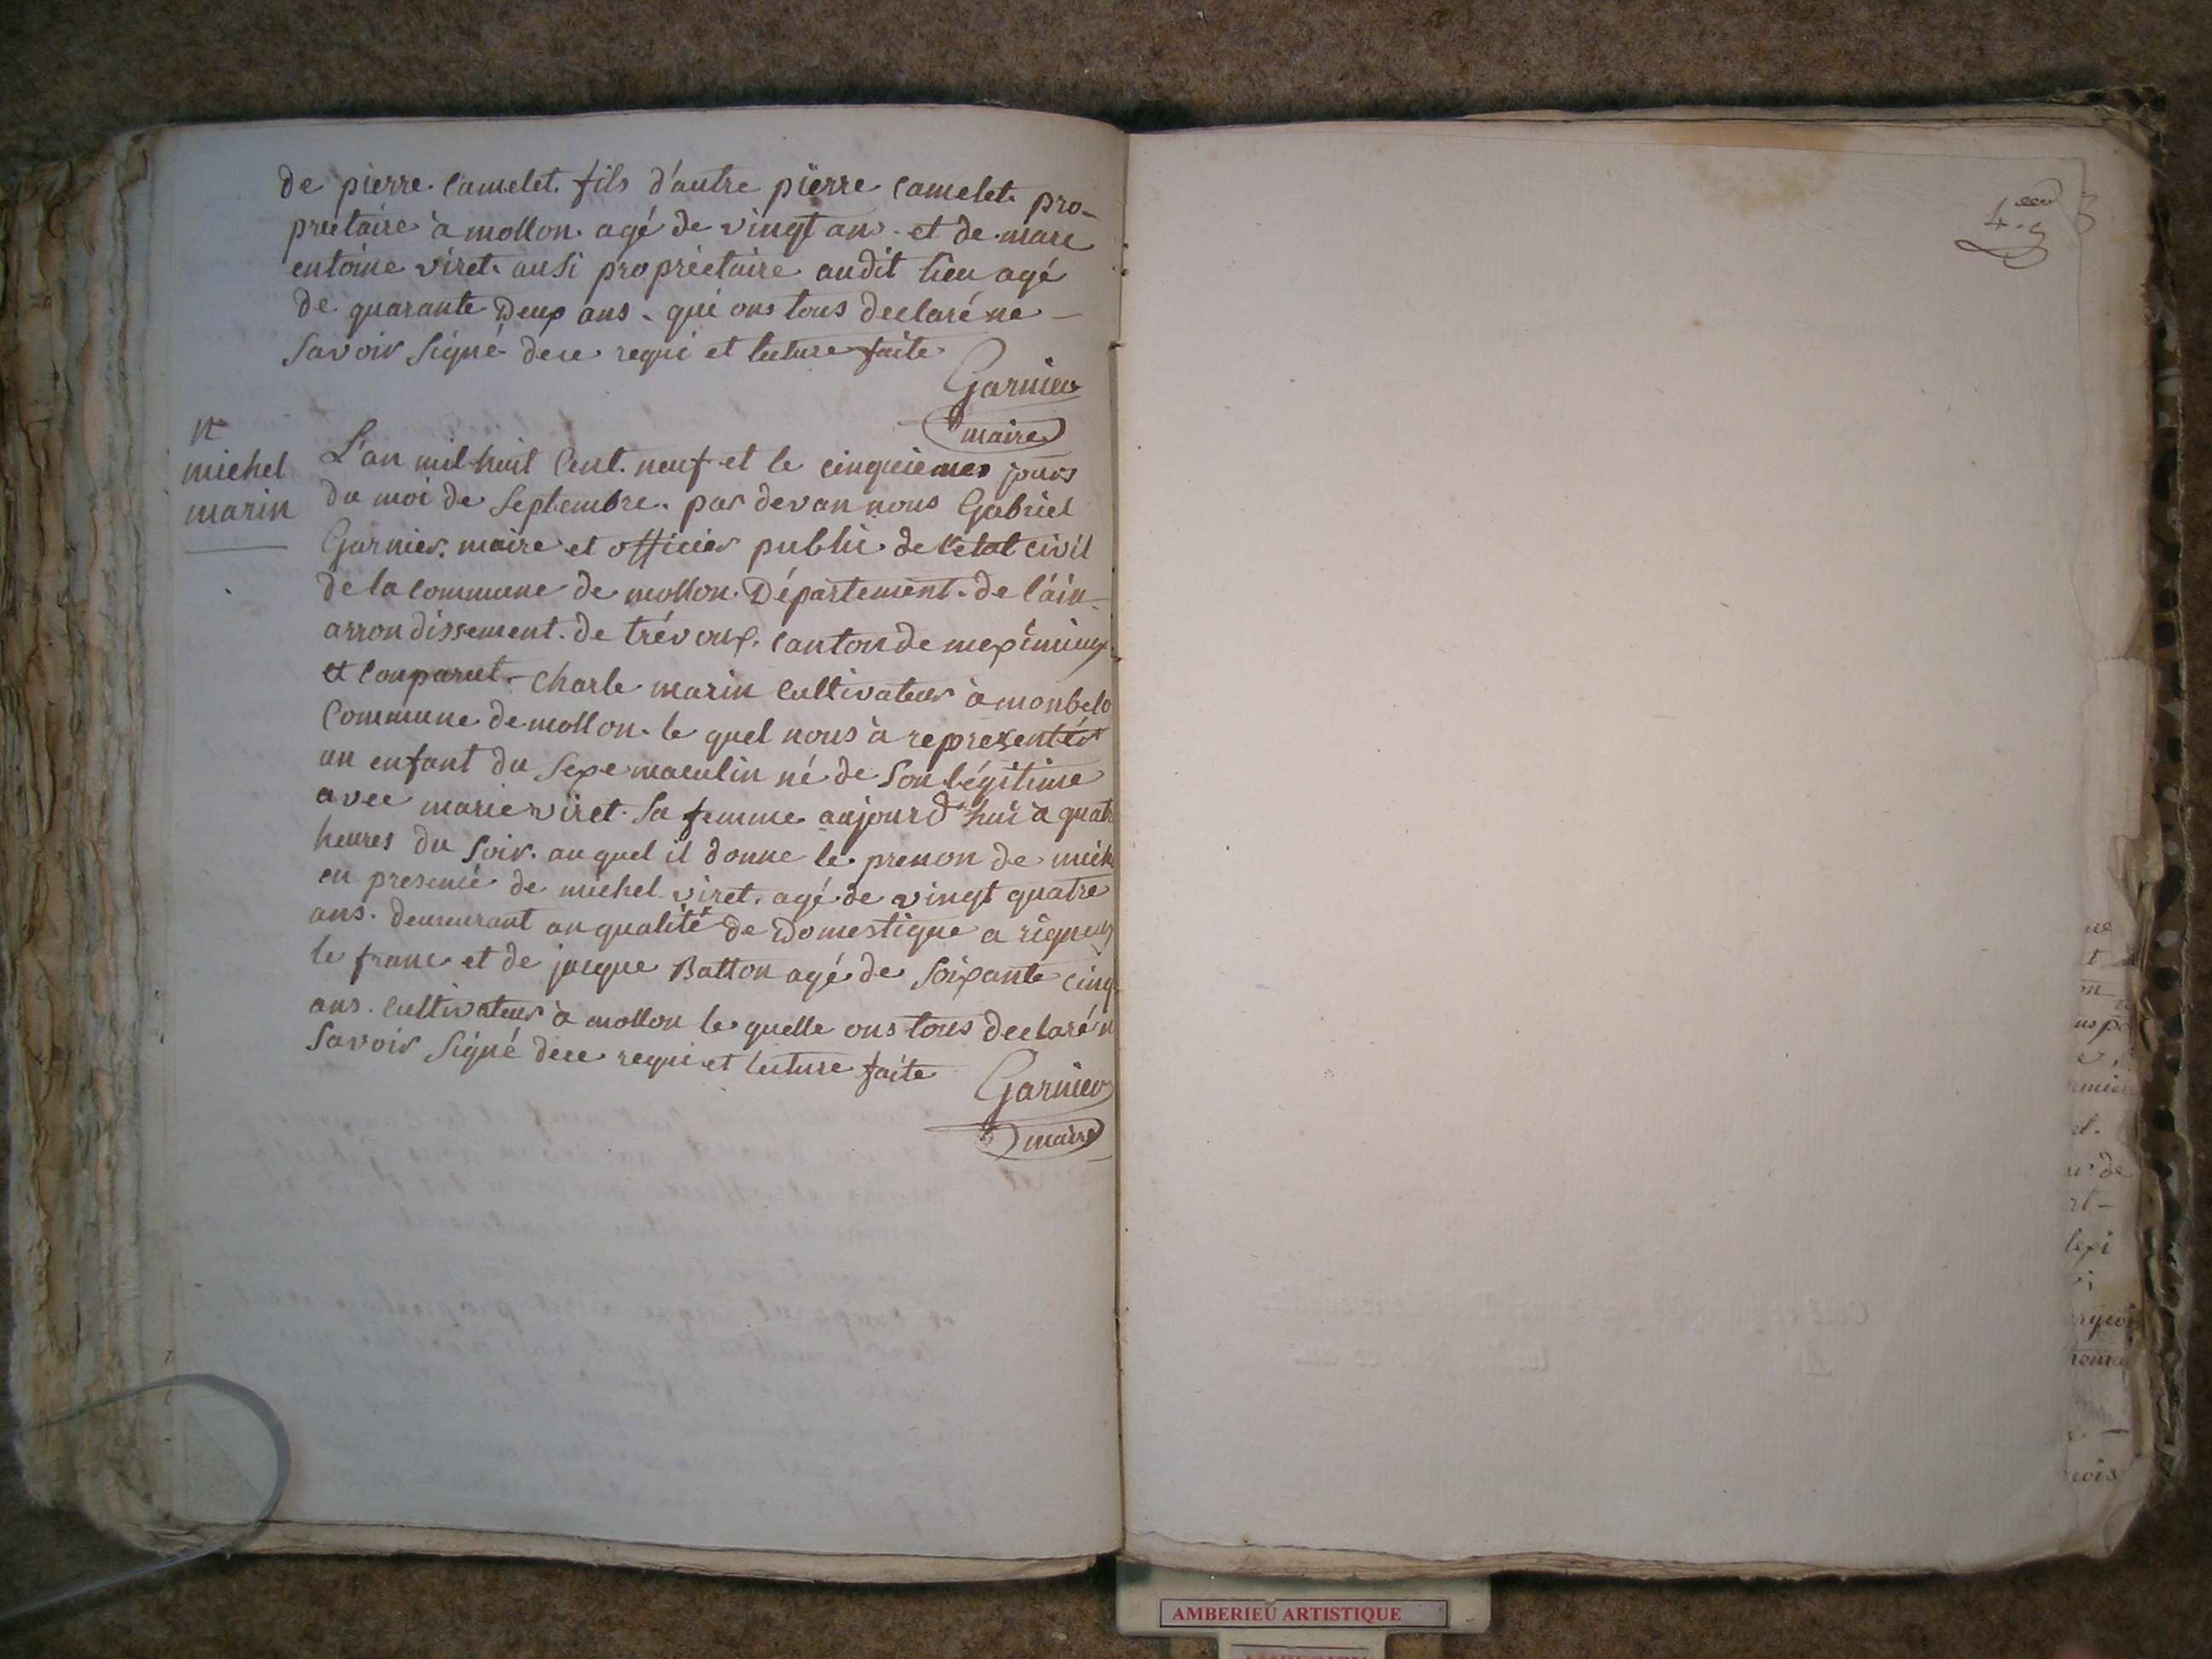 de pierre Camelet. fils d'autre pierre Camelet. pro-
prietaire à mollon. agé de vingt ans. et de marc
entoine viret. ausi propriétaire audit lieu agé
de quarante deux ans. qui ons tous declaré ne
savoir signé dece requi et lecture faite
Garnier
maire
N
michel
marin
L'an mil huit Cent. neuf et le cinquiemes jours
du moi de Septembre. par devan nous Gabriel
Garnier. maire et officier public de l'état civil
de la commune de mollon. Département. de l'ain
arrondissement. de trévoux. canton de meximieux.
et Comparut. Charle marin Cultivateur à monbelo
Commune de mollon. le quel nous à representér
un enfant du Sexe maculin né de son légitime
avec marie viret. sa femme aujourd'hui à quatr
heures du soir. au quel il donne le. prenon de mich
en presence de michel viret. agé de vingt quatre
ans. demeurant an qualité de Domestique a rigneux
le franc et de jacque Batton agé de soixante cinq
ans. Cultivateur à mollon le quelle ons tous declaré n
savoir signé dece requi et lecture faite
Garnier
maire
AMBERIEU ARTISTIQUE